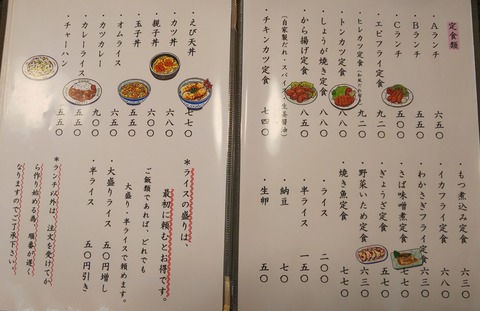 定食類
・Aランチ　六五〇
・Bランチ
・Cランチ　五五〇
・エビフライ定食　九二〇
・ヒレカツ定食　九二〇
・トンカツ定食　八八〇
・しょうが焼き定食　八八〇
・から揚げ定食　八五〇
（自家製だれ・スパイス・生姜醤油）
・チキンカツ定食　七四〇
・もつ煮込み定食　六三〇
・イカフライ定食　六八〇
・わかさぎフライ定食　六三〇
・さば味噌煮定食　五七〇
・ぎょうざ定食　五五〇
・野菜いため定食　六三〇
・焼き魚定食　七七〇
・ライス　二〇〇
・半ライス　一五〇
・納豆　七〇
・生卵　五〇
・えび天丼　七七〇
・カツ丼　六八〇
・親子丼　六〇〇
・玉子丼　五五〇
・オムライス　六五〇
・カツカレー　九〇〇
・カレーライス　五五〇
・チャーハン　五五〇
＊ライスの盛りは、
最初に頼むとお得です。
ご飯類であれば、どれでも
大盛り・半ライスで頼めます。
・大盛りライス　五〇円増し
・半ライス　五〇円引き
＊ランチ以外は、注文を受けてか
ら作り始める為　順番が遅く
なりますのでご了承下さい。